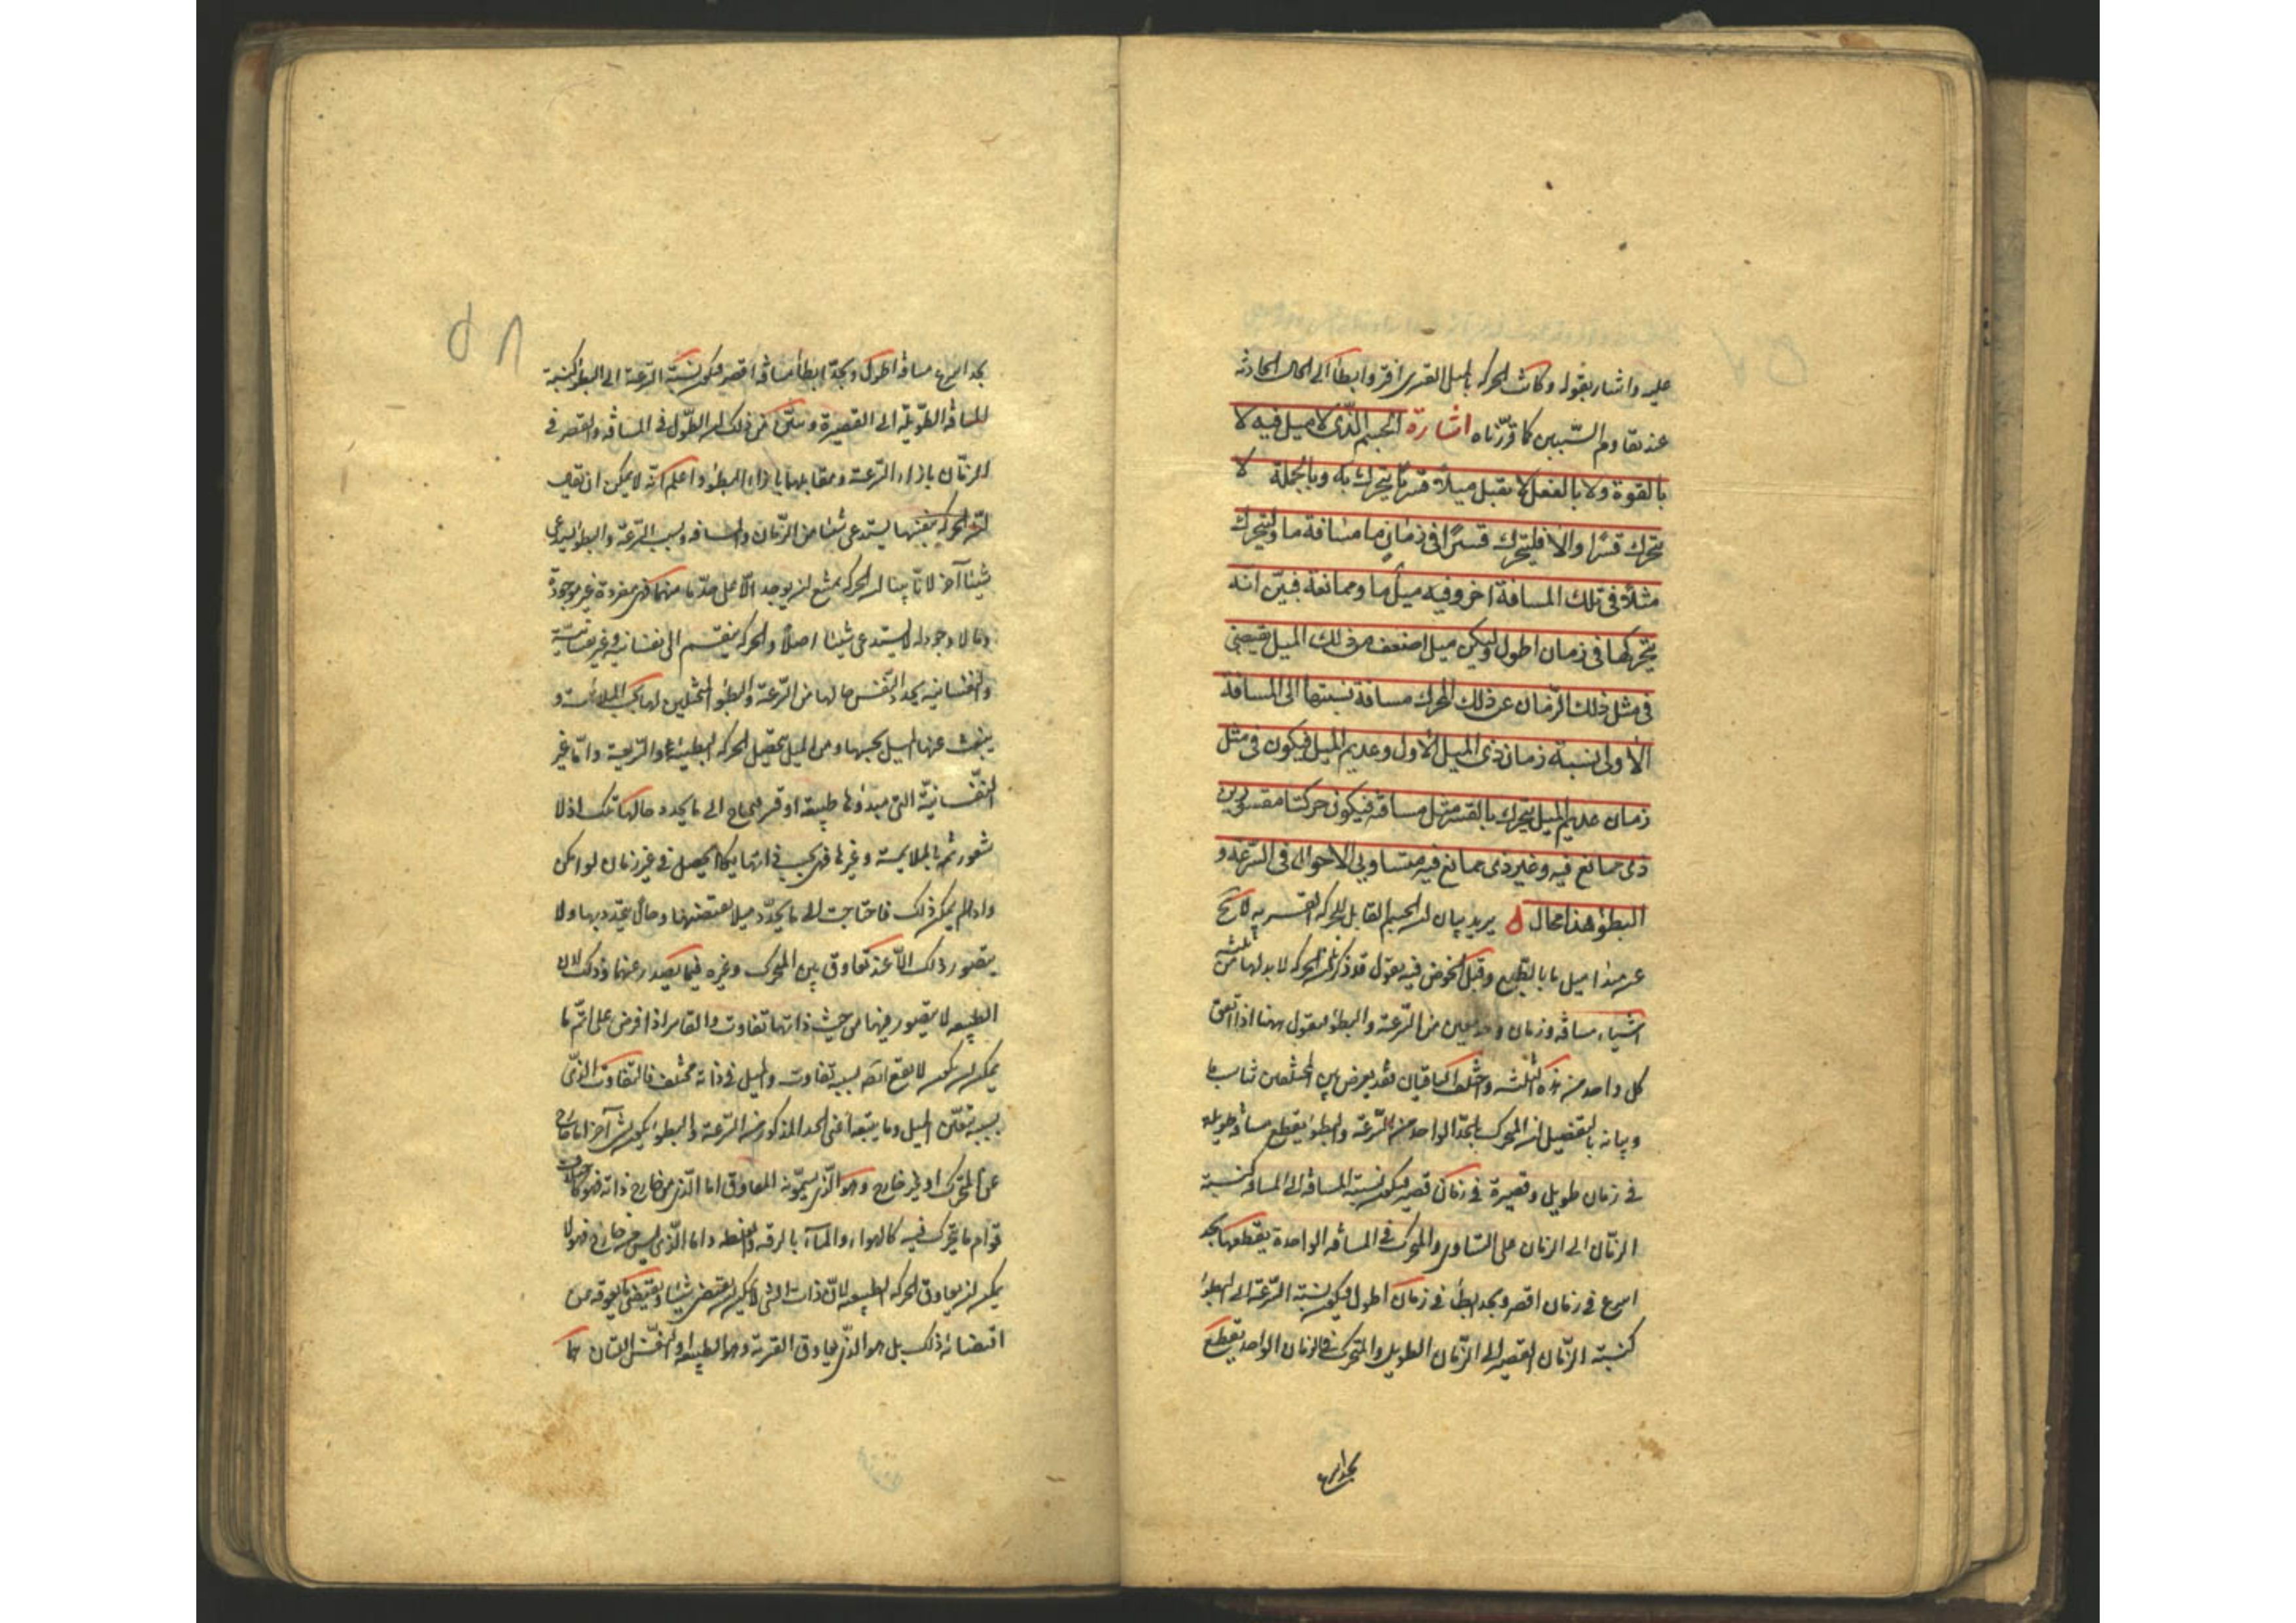 ٥٧
عليه واشار بقوله وكانت الحركة بالميل القسرى افتر وابطأ الى الحال الحادثة
عند تقاوم السببين كما قررناه اشارة الجسم الذى لا ميل فيه لا
بالقوة ولا بالفعل لا يقبل ميلا قسريا يتحرك به وبالجملة لا
يتحرك قسرا والا فليتحرك قسرا فى زمان ما مسافة ما وليتحرك
مثلا فى تلك المسافة اخر وفيه ميل ما وممانعة فبين انه
يتحركها فى زمان اطول وليكن ميل اضعف من ذلك الميل يقتضى
فى مثل ذلك الزمان عن ذلك المحرك مسافة نسبتها الى المسافة
الأولى نسبة زمان ذى الميل الأول وعديم الميل فيكون فى مثل
زمان عديم الميل يتحرك بالقسر مثل مسافته فيكون حركتا مقسورين
ذى ممانع فيه وغير ذى ممانع فيه متساويى الأحوال فى السرعة و
البطؤ هذا محال يريد بيان ان الجسم القابل للحركة القسرية لا يخ
عن مبدا ميل ما بالطبع وقبل الخوض فيه نقول قد ذكرنا ان الحركة لا بد لها من ثلثة
اشياء مسافة وزمان وحد معين من السرعة والبطؤ فنقول ههنا اذا اتفق
كل واحد من هذه الثلثة واختلف الباقيان فقد يعرض بين المختلفين تناسب ما
وبيانه بالتفصيل ان المتحرك بالحد الواحد من السرعة والبطؤ يقطع مسافة طويلة
فى زمان طويل وقصيرة فى زمان قصير فيكون نسبة المسافة الى المسافة كنسبة
الزمان الى الزمان على التساوى والمتحرك فى المسافة الواحدة يقطعها بحد
اسرع فى زمان اقصر وبحد ابطأ فى زمان اطول فيكون نسبة السرعة الى البطؤ
كنسبة الزمان القصير الى الزمان الطويل والمتحرك فى الزمان الواحد يقطع
بحد اسرع
٥٨
بحد اسرع مسافة اطول وبحد ابطأ مسافة اقصر فيكون نسبة السرعة الى البطؤ كنسبة
المسافة الطويلة الى القصيرة وتبين من ذلك ان الطول فى المسافة والقصر فى
الزمان بازاء السرعة ومقابلهما بازاء البطؤ واعلم انه لا يمكن ان يقال
ان الحركة بنفسها يستدعى شيئا من الزمان والمسافة وبسبب السرعة والبطؤ يستدعى
شيئا آخر لانا بينا ان الحركة يمتنع ان يوجد الا على حد ما منهما فهى مفردة غير موجودة
وما لا وجود له لا يستدعى شيئا اصلا والحركة ينقسم الى نفسانية وغير نفسانية
والنفسانية يحدد النفس حالها من السرعة والبطؤ المتخيلين لها بحسب الملائمة و
ينبعث عنها الميل بحسبها ومن الميل يتحصل الحركة البطيئة والسريعة واما غير
النفسانية التى مبدؤها طبيعة او قسر فيحتاج الى ما يحدد حالها تلك اذ لا
شعور ثم بالملايمة وغيرها فهى بحسب ذاتها يكاد يحصل فى غير زمان لو امكن
واذ لم يمكن ذلك فاحتاجت الى ما يحدد ميلا يقتضيها وحالا يتحدد بها ولا
يتصور ذلك الا عند تعاوق بين المحرك وغيره فيما يصدر عنهما وذلك لان
الطبيعة لا يتصور فيها من حيث ذاتها تفاوت والقاسر اذا فرض على اتم ما
يمكن ان يكون لا يقع ايضا بسببه تفاوت والميل فى ذاته مختلف فالتفاوت الذى
بسببه يتعين الميل وما يتبعه اعنى الحد المذكور من السرعة والبطؤ يكون بشىء آخر اما خارج
عن المتحرك او غير خارج وهو الذى يسمونه المعاوق اما الذى من خارج ذاته فهو كاختلاف
قوام ما يتحرك فيه كالهواء والماء بالرقة والغلظ واما الذى ليس من خارج فهو لا
يمكن ان يعاوق الحركة الطبيعية لان ذات الشىء لا يمكن ان يقتضى شيئا ويقتضى ما يعوقه عن
اقتضائه ذلك بل هو الذى يعاوق القسرية وهو الطبيعة او النفس اللتان هما